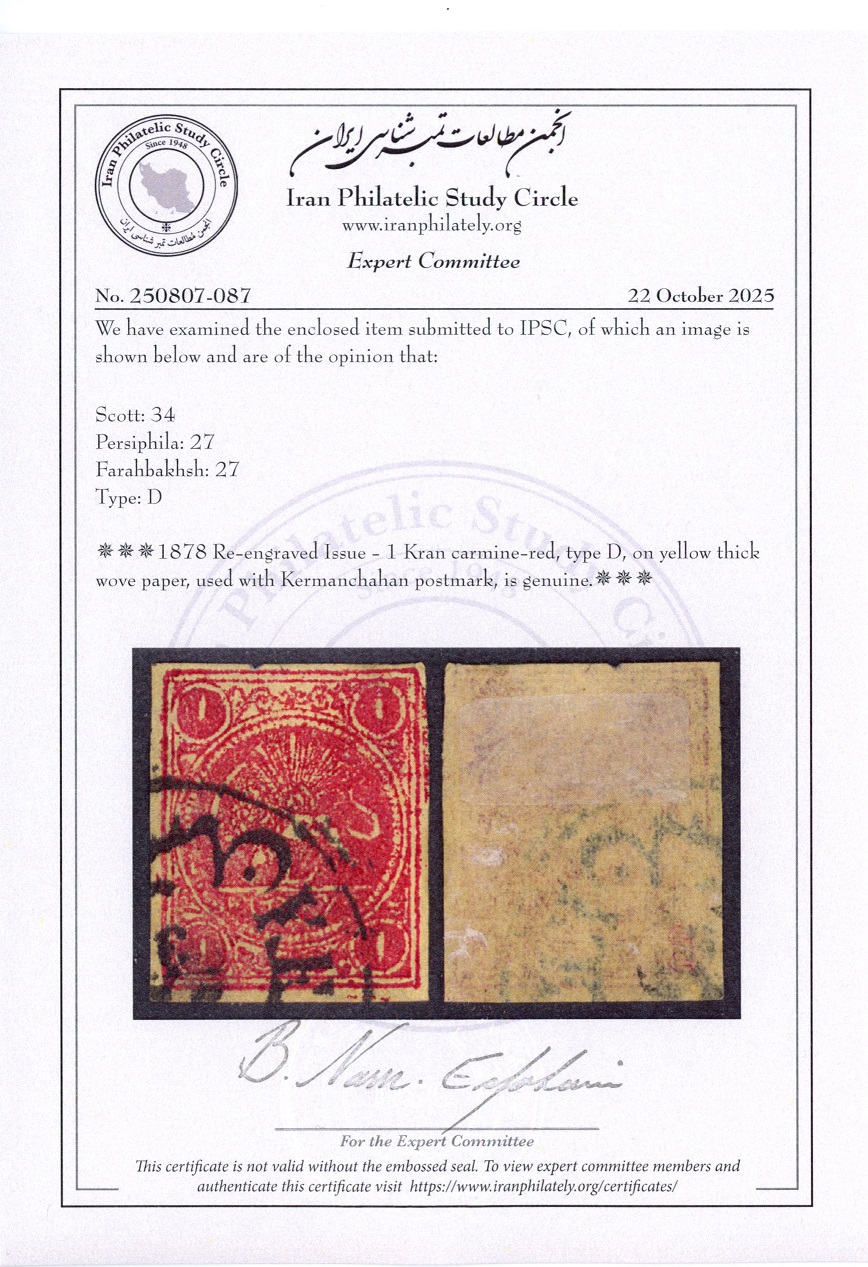 Iran Philatelic Study Circle
Since 1948
انجمن مطالعات تمبر شناسی ایران
انجمن مطالعات تمبر شناسی ایران
Iran Philatelic Study Circle
www.iranphilately.org
Expert Committee
No. 250807-087
22 October 2025
We have examined the enclosed item submitted to IPSC, of which an image is
shown below and are of the opinion that:
Scott: 34
Persiphila: 27
Farahbakhsh: 27
Type: D
✵✵✵1878 Re-engraved Issue - 1 Kran carmine-red, type D, on yellow thick
wove paper, used with Kermanchahan postmark, is genuine.✵✵✵
Philatelic Study Ci
Since 1948
1 1
1 1
B. Nam. Esfahani
For the Expert Committee
This certificate is not valid without the embossed seal. To view expert committee members and
authenticate this certificate visit https://www.iranphilately.org/certificates/